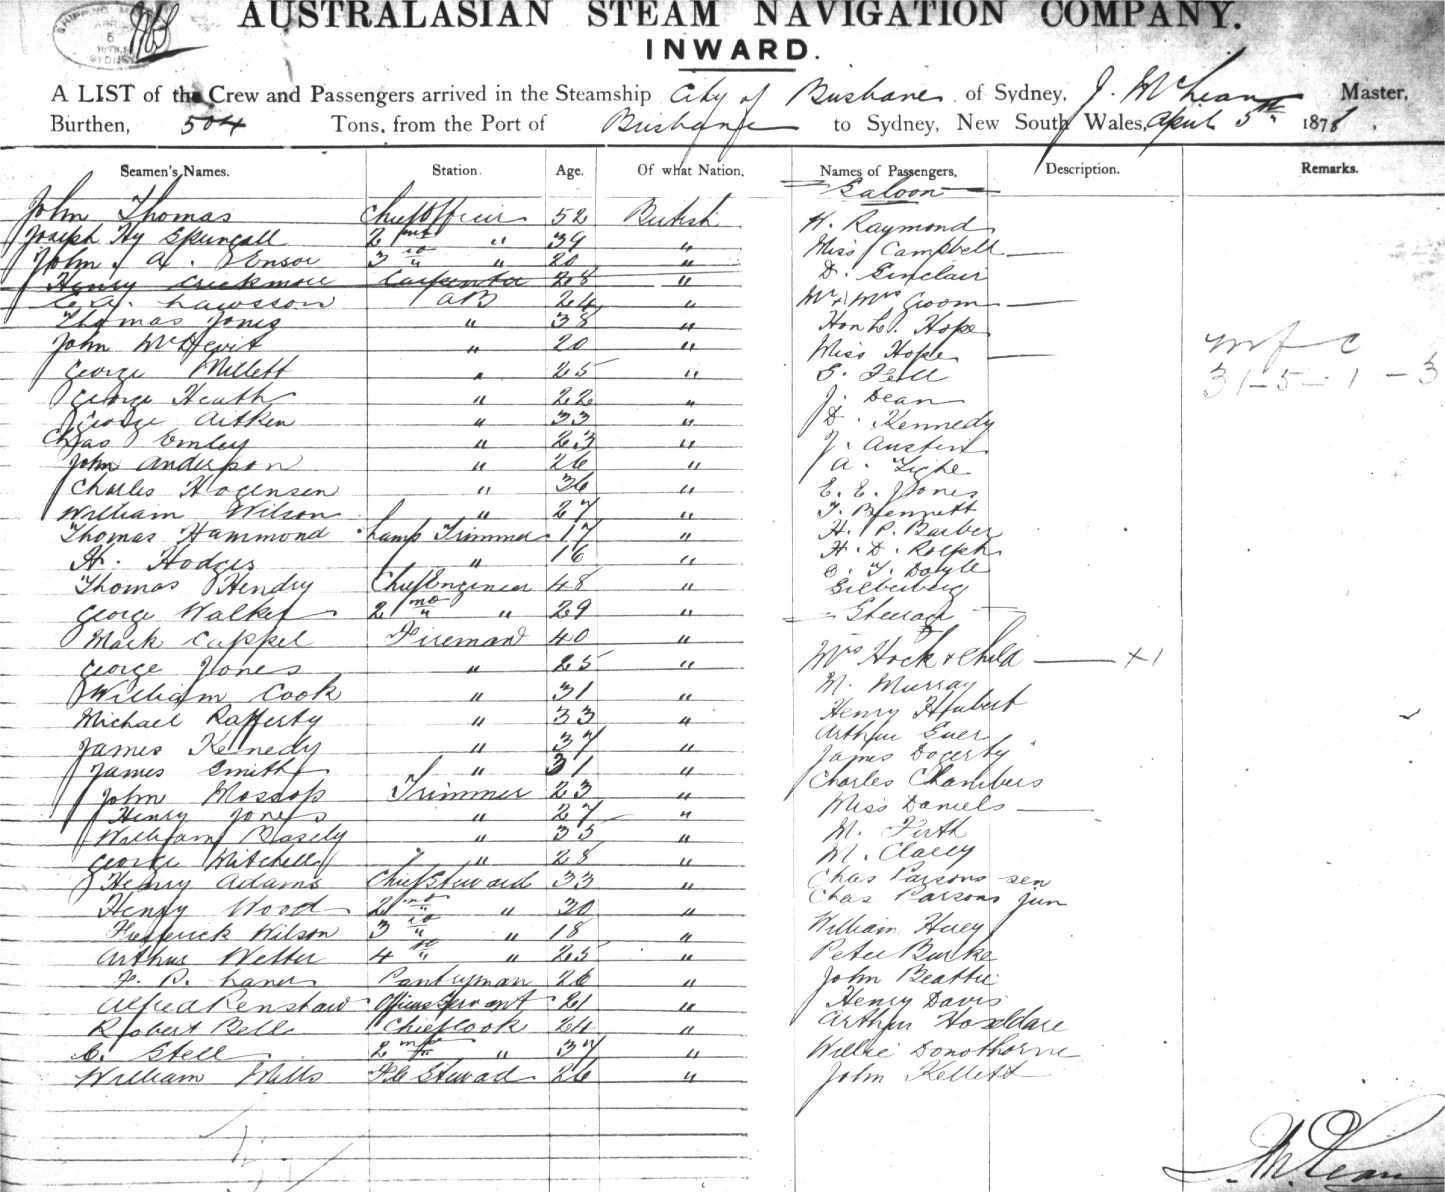 AUSTRALASIAN STEAM NAVIGATION COMPANY.
INWARD.
A LIST of the Crew and Passengers arrived in the Steamship City of Brisbane of Sydney, J. McLean Master,
Burthen, 504 Tons, from the Port of Brisbane to Sydney, New South Wales, April 5th 1878.
Seamen's Names. Station. Age. Of what Nation.
John Thomas Chief Officer 52 British
Joseph Hy Spurgall 2nd " 39 "
John A. 3rd " 20 "
Henry Crickmore Carpenter 28 "
C. A. Lawsson AB 24 "
Thomas Jones " 38 "
John McDevit " 20 "
George Millett " 25 "
George Heath " 22 "
George Aitken " 33 "
Chas Emley " 23 "
John Anderson " 26 "
Charles Hogensen " 36 "
William Wilson " 27 "
Thomas Hammond Lamp Trimmer 17 "
H. Hodges " 16 "
Thomas Hendry Chief Engineer 48 "
George Walker 2nd " 29 "
Mark Cappel Fireman 40 "
George Jones " 25 "
William Cook " 31 "
Michael Rafferty " 33 "
James Kennedy " 37 "
James Smith " 31 "
John Mossop Trimmer 23 "
Henry Jones " 27 "
William Basely " 35 "
George Mitchell " 28 "
Henry Adams Chief Steward 33 "
Henry Wood 2nd " 30 "
Frederick Wilson 3rd " 18 "
Arthur Welter 4th " 25 "
F. P. Pantryman 26 "
Alfred Renshaw Officers Servant 21 "
Robert Bell Chief Cook 24 "
C. Stell 2nd " 37 "
William Mills F.C. Steward 26 "
Names of Passengers, Description. Remarks.
Saloon
H. Raymond
Miss Campbell
D. Sinclair
Mr & Mrs Groom
Hon L. Hope
Miss Hope
E. Fell
J. Dean
D. Kennedy
J. Austin
A. Tighe
E. E. Jones
T. Bennett
H. P. Barber
H. D. Rolph
O. T. Doyle
Silberberg
Steerage
Mrs Hock & Child +1
M. Murray
Henry Hubert
Arthur Guer
James Dogerty
Charles Chambers
Miss Daniels
M. Firth
M. Clacey
Chas Parsons sen
Chas Parsons jun
William Huey
Peter Burke
John Beattie
Henry Davis
Arthur Hoseldare
Willie Donothorne
John Kellett
m f c
31-5-1-3